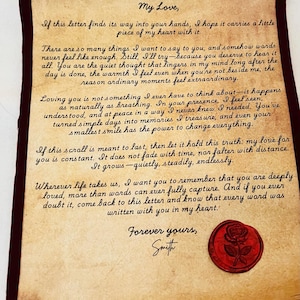 My Love,
If this letter finds its way into your hands, I hope it carries a little
piece of my heart with it.
There are so many things I want to say to you, and somehow words
never feel like enough. Still, I'll try—because you deserve to hear it
all. You are the quiet thought that lingers in my mind long after the
day is done, the warmth I feel even when you're not beside me, the
reason ordinary moments feel extraordinary.
Loving you is not something I ever have to think about—it happens
as naturally as breathing. In your presence, I feel seen,
understood, and at peace in a way I never knew I needed. You've
turned simple days into memories I treasure, and even your
smallest smile has the power to change everything.
If this scroll is meant to last, then let it hold this truth: my love for
you is constant. It does not fade with time, nor falter with distance.
It grows—quietly, steadily, endlessly.
Wherever life takes us, I want you to remember that you are deeply
loved, more than words can ever fully capture. And if you ever
doubt it, come back to this letter and know that every word was
written with you in my heart.
Forever yours,
Smith